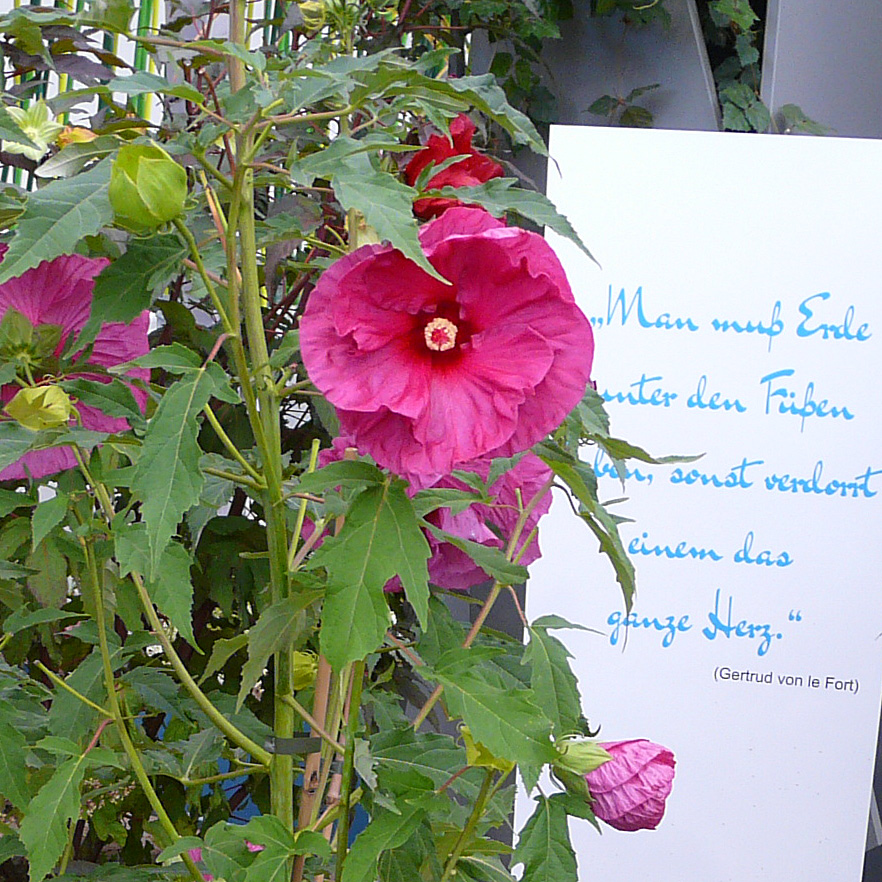 „Man muß Erde
unter den Füßen
ben, sonst verdorrt
einem das
ganze Herz.“
(Gertrud von le Fort)